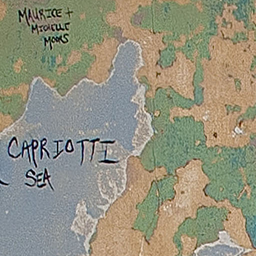 MAURICE +
MICHELLE
MOORS
CAPRIOTTI
SEA